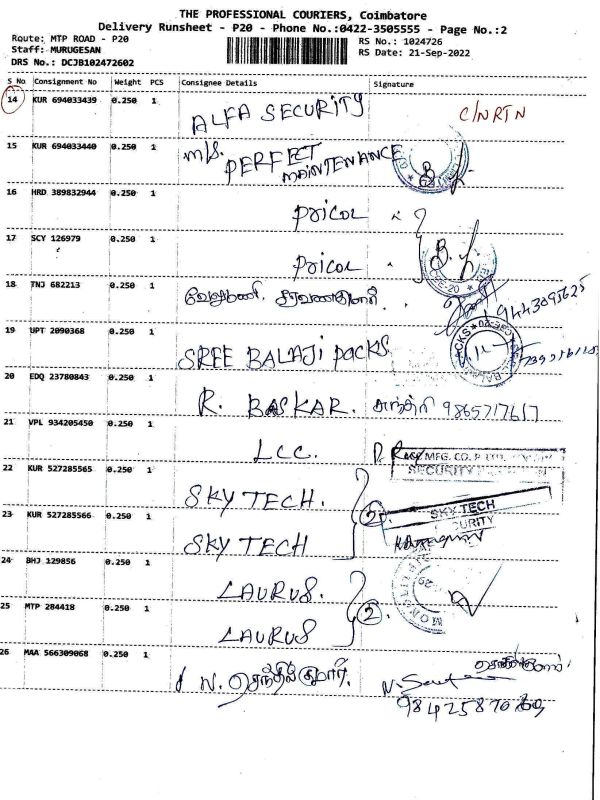 THE PROFESSIONAL COURIERS, Coimbatore
Delivery Runsheet - P20 - Phone No.:0422-3505555 - Page No.:2
Route: MTP ROAD - P20
RS No.: 1024726
Staff: MURUGESAN
RS Date: 21-Sep-2022
DRS No.: DCJB102472602
S No Consignment No Weight PCS Consignee Details Signature
14 KUR 694033439 0.250 1 ALFA SECURITY C/NRTN
15 KUR 694033440 0.250 1 M/S. PERFECT
MAINTENANCE
16 HRD 389832944 0.250 1 PRICOL
17 SCY 126979 0.250 1 PRICOL
18 TNJ 682213 0.250 1 வேலுமணி. 9443095625
19 UPT 2090368 0.250 1 SREE BALAJI PACKS
20 EDQ 23780843 0.250 1 R. BASKAR. 9865717617
21 VPL 934205450 0.250 1 LCC.
MFG. CO. P. LTD.
SECURITY
22 KUR 527285565 0.250 1 SKY TECH. 2
SKY TECH
23 KUR 527285566 0.250 1 SKY TECH
24 BHJ 129856 0.250 1 LAURUS. 2
25 MTP 284418 0.250 1 LAURUS
26 MAA 566309068 0.250 1 N. செந்தில்குமார்.